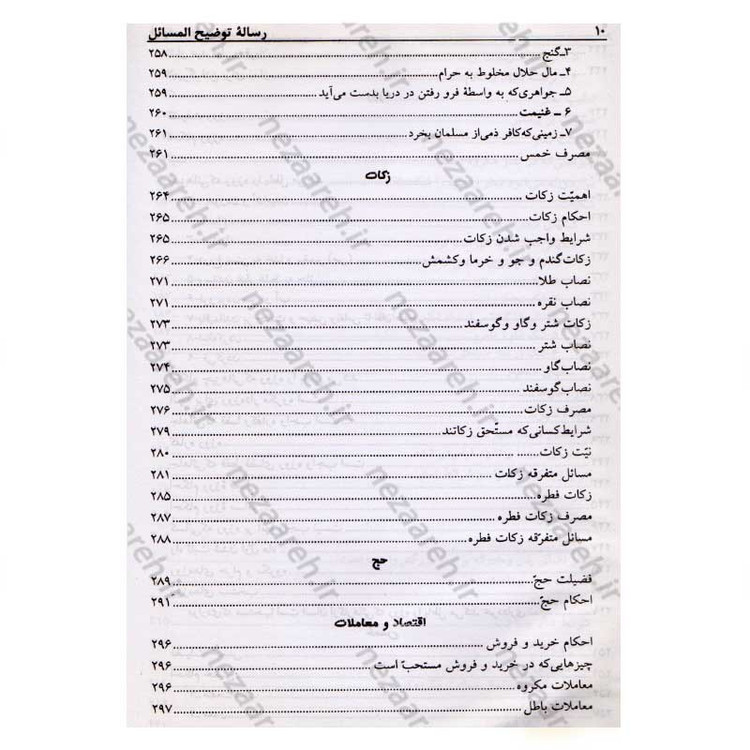 ۱۰ رسالهٔ توضیح المسائل
۳ـ گنج ........ ۲۵۸
۴ـ مال حلال مخلوط به حرام ........ ۲۵۹
۵ـ جواهری‌که به واسطهٔ فرو رفتن در دریا بدست می‌آید ........ ۲۵۹
۶ ــ غنیمت ........ ۲۶۰
۷ـ زمینی‌که‌کافر ذمی‌از مسلمان بخرد ........ ۲۶۱
مصرف خمس ........ ۲۶۱
زکات
اهمیّت زکات ........ ۲۶۴
احکام زکات ........ ۲۶۵
شرایط واجب شدن زکات ........ ۲۶۵
زکات‌گندم و جو و خرما وکشمش ........ ۲۶۶
نصاب طلا ........ ۲۷۱
نصاب نقره ........ ۲۷۱
زکات شتر وگاو وگوسفند ........ ۲۷۳
نصاب شتر ........ ۲۷۳
نصاب‌گاو ........ ۲۷۴
نصاب‌گوسفند ........ ۲۷۵
مصرف زکات ........ ۲۷۶
شرایط‌کسانی‌که مستّحق زکاتند ........ ۲۷۹
نیّت زکات ........ ۲۸۰
مسائل متفرقه زکات ........ ۲۸۱
زکات فطره ........ ۲۸۵
مصرف زکات فطره ........ ۲۸۷
مسائل متفرّقه زکات فطره ........ ۲۸۸
حج
فضیلت حجّ ........ ۲۸۹
احکام حجّ ........ ۲۹۱
اقتصاد و معاملات
احکام خرید و فروش ........ ۲۹۶
چیزهایی‌که در خرید و فروش مستحبّ است ........ ۲۹۶
معاملات مکروه ........ ۲۹۶
معاملات باطل ........ ۲۹۷
nezaareh.ir